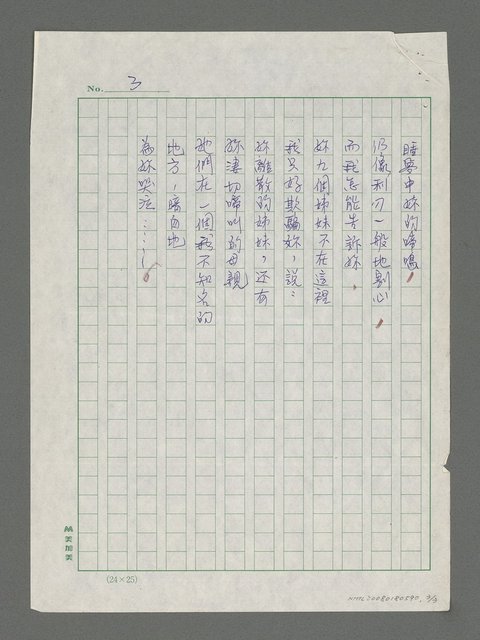 No. 3
暗暮中妳的啼鳴，
仍像利刃一般地剔心，
而我怎能告訴妳，
妳九個姊妹不在這裡
我只好欺騙妳，說：
妳離散的姊妹，还有
妳淒切啼叫的母親
她們在一個我不知名的
地方，暗自地
為妳哭泣……。
美加美
(24×25)
NMTL20080180590, 3/3